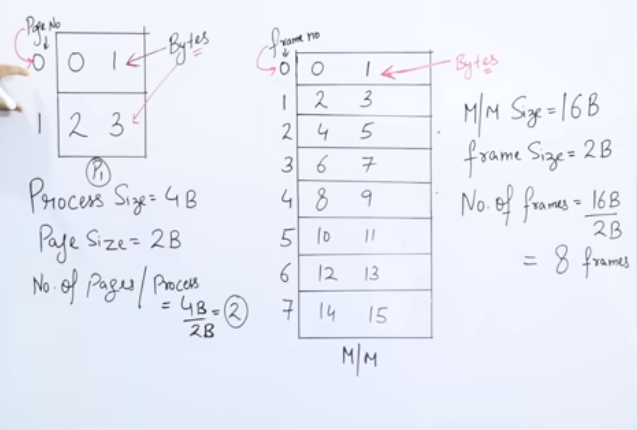 Page No
0 0 1 Bytes
1 2 3
P1
Process Size = 4B
Page Size = 2B
No. of Pages / Process
= 4B / 2B = 2
frame no
0 0 1 Bytes
1 2 3
2 4 5
3 6 7
4 8 9
5 10 11
6 12 13
7 14 15
M/M
M/M Size = 16B
frame Size = 2B
No. of frames = 16B / 2B
= 8 frames